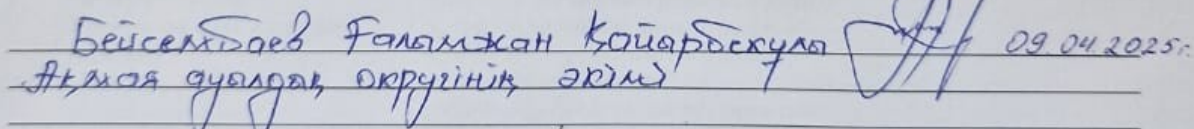 Бейсембаев Ғалымжан Қойарбекұлы 09.04.2025г.
Ақмая ауылдық округінің әкімі